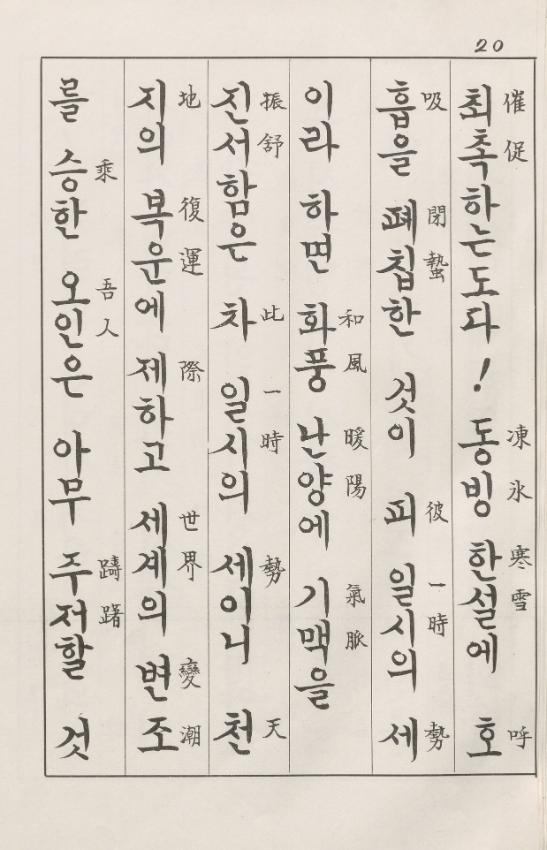 20
최촉하는도다! 동빙 한설에 호
催促 凍氷 寒雪 呼
흡을 폐칩한 것이 피 일시의 세
吸 閉蟄 彼 一時 勢
이라 하면 화풍 난양에 기맥을
和風 暖陽 氣脈
진서함은 차 일시의 세이니 천
振舒 此 一時 勢 天
지의 복운에 제하고 세계의 변조
地 復運 際 世界 變潮
를 승한 오인은 아무 주저할 것
乘 吾人 躊躇